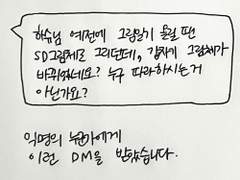 하슈님 예전에 그림일기 올릴 땐
SD그림체로 그리던데, 갑자기 그림체가
바뀌었네요? 누구 따라하시는거
아닌가요?
익명의 누군가에게
이런 DM을 받았습니다.